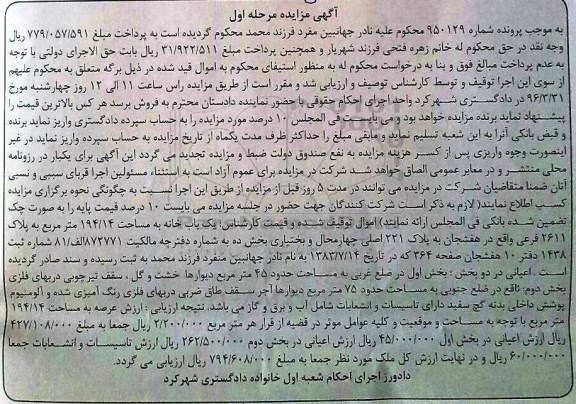 آگهی مزایده مرحله اول
به موجب پرونده شماره ۹۵۰۱۲۹ محکوم علیه نادر جهانبین مفرد فرزند محمد محکوم گردیده است به پرداخت مبلغ ۷۷۹/۰۵۷/۵۹۱ ریال
وجه نقد در حق محکوم له خانم زهره فتحی فرزند شهریار و همچنین پرداخت مبلغ ۳۱/۹۲۲/۵۱۱ ریال بابت حق الاجرای دولتی با توجه
به عدم پرداخت مبالغ فوق و بنا به درخواست محکوم له به منظور استیفای محکوم به اموال قید شده در ذیل برگه متعلق به محکوم علیهم
از سوی این اجرا توقیف و توسط کارشناس توصیف و ارزیابی شد و مقرر است از طریق مزایده راس ساعت ۱۱ الی ۱۲ روز چهارشنبه مورخ
۹۶/۳/۳۱ در دادگستری شهرکرد واحد اجرای احکام حقوقی با حضور نماینده دادستان محترم به فروش برسد هر کس بالاترین قیمت را
پیشنهاد نماید برنده مزایده خواهد بود و می بایست فی المجلس ۱۰ درصد مورد مزایده را به حساب سپرده دادگستری واریز نماید برنده
و قبض بانکی آنرا به این شعبه تسلیم نماید و مابقی مبلغ را حداکثر ظرف مدت یکماه از تاریخ مزایده به حساب سپرده واریز نماید در غیر
اینصورت وجوه واریزی پس از کسر هزینه مزایده به نفع صندوق دولت ضبط و مزایده تجدید می گردد این آگهی برای یکبار در روزنامه
محلی منتشر و در معابر عمومی الصاق خواهد شد شرکت در مزایده برای عموم آزاد است به استثناء مسئولین اجرا قربای سببی و نسبی
آنان ضمنا متقاضیان شرکت در مزایده می توانند در مدت ۵ روز قبل از مزایده از طریق این اجرا نسبت به چگونگی نحوه برگزاری مزایده
کسب اطلاع نمایند( لازم به ذکر است شرکت کنندگان جهت حضور در جلسه مزایده می بایست ۱۰ درصد قیمت پایه را به صورت چک
تضمین شده بانکی فی المجلس ارائه نمایند) اموال توقیف شده و قیمت کارشناس: یک باب خانه به مساحت ۱۹۴/۱۴ متر مربع به پلاک
۲۶۱۱ فرعی واقع در هفشجان به پلاک ۲۲۱ اصلی چهارمحال و بختیاری بخش ده به شماره دفترچه مالکیت ۸۷۲۷۷۱الف/۸۱ شماره ثبت
۱۴۳۸ دفتر ۱۰ هفشجان صفحه ۳۶۴ که در تاریخ ۱۳۸۳/۷/۱۴ به نام نادر جهانبین منفرد فرزند محمد به ثبت رسیده و سند صادر گردیده
است . اعیانی در دو بخش : بخش اول در ضلع غربی به مساحت حدود ۴۵ متر مربع دیوارها خشت و گل ، سقف تیرچوبی دربهای فلزی
بخش دوم: واقع در ضلع جنوبی به مساحت حدود ۷۵ متر مربع دیوارها آجر سقف طاق ضربی دربهای فلزی رنگ آمیزی شده و آلومنیوم
پوشش داخلی بدنه گچ سفید دارای تاسیسات و انشعابات شامل آب و برق و گاز می باشد. نتیجه ارزیابی : ارزش عرصه به مساحت ۱۹۴/۱۴
متر مربع با توجه به مساحت و موقعیت و کلیه عوامل موثر در قضیه از قرار هر متر مربع ۲/۲۰۰/۰۰۰ ریال جمعا به مبلغ ۴۲۷/۱۰۸/۰۰۰
ریال ارزش اعیانی در بخش اول ۴۵/۰۰۰/۰۰۰ ریال ارزش اعیانی در بخش دوم ۲۶۲/۵۰۰/۰۰۰ ریال ارزش تاسیسات و انشعابات جمعا
۶۰/۰۰۰/۰۰۰ ریال و در نهایت ارزش کل ملک مورد نظر جمعا به مبلغ ۷۹۴/۶۰۸/۰۰۰ ریال ارزیابی می گردد.
دادورز اجرای احکام شعبه اول خانواده دادگستری شهرکرد